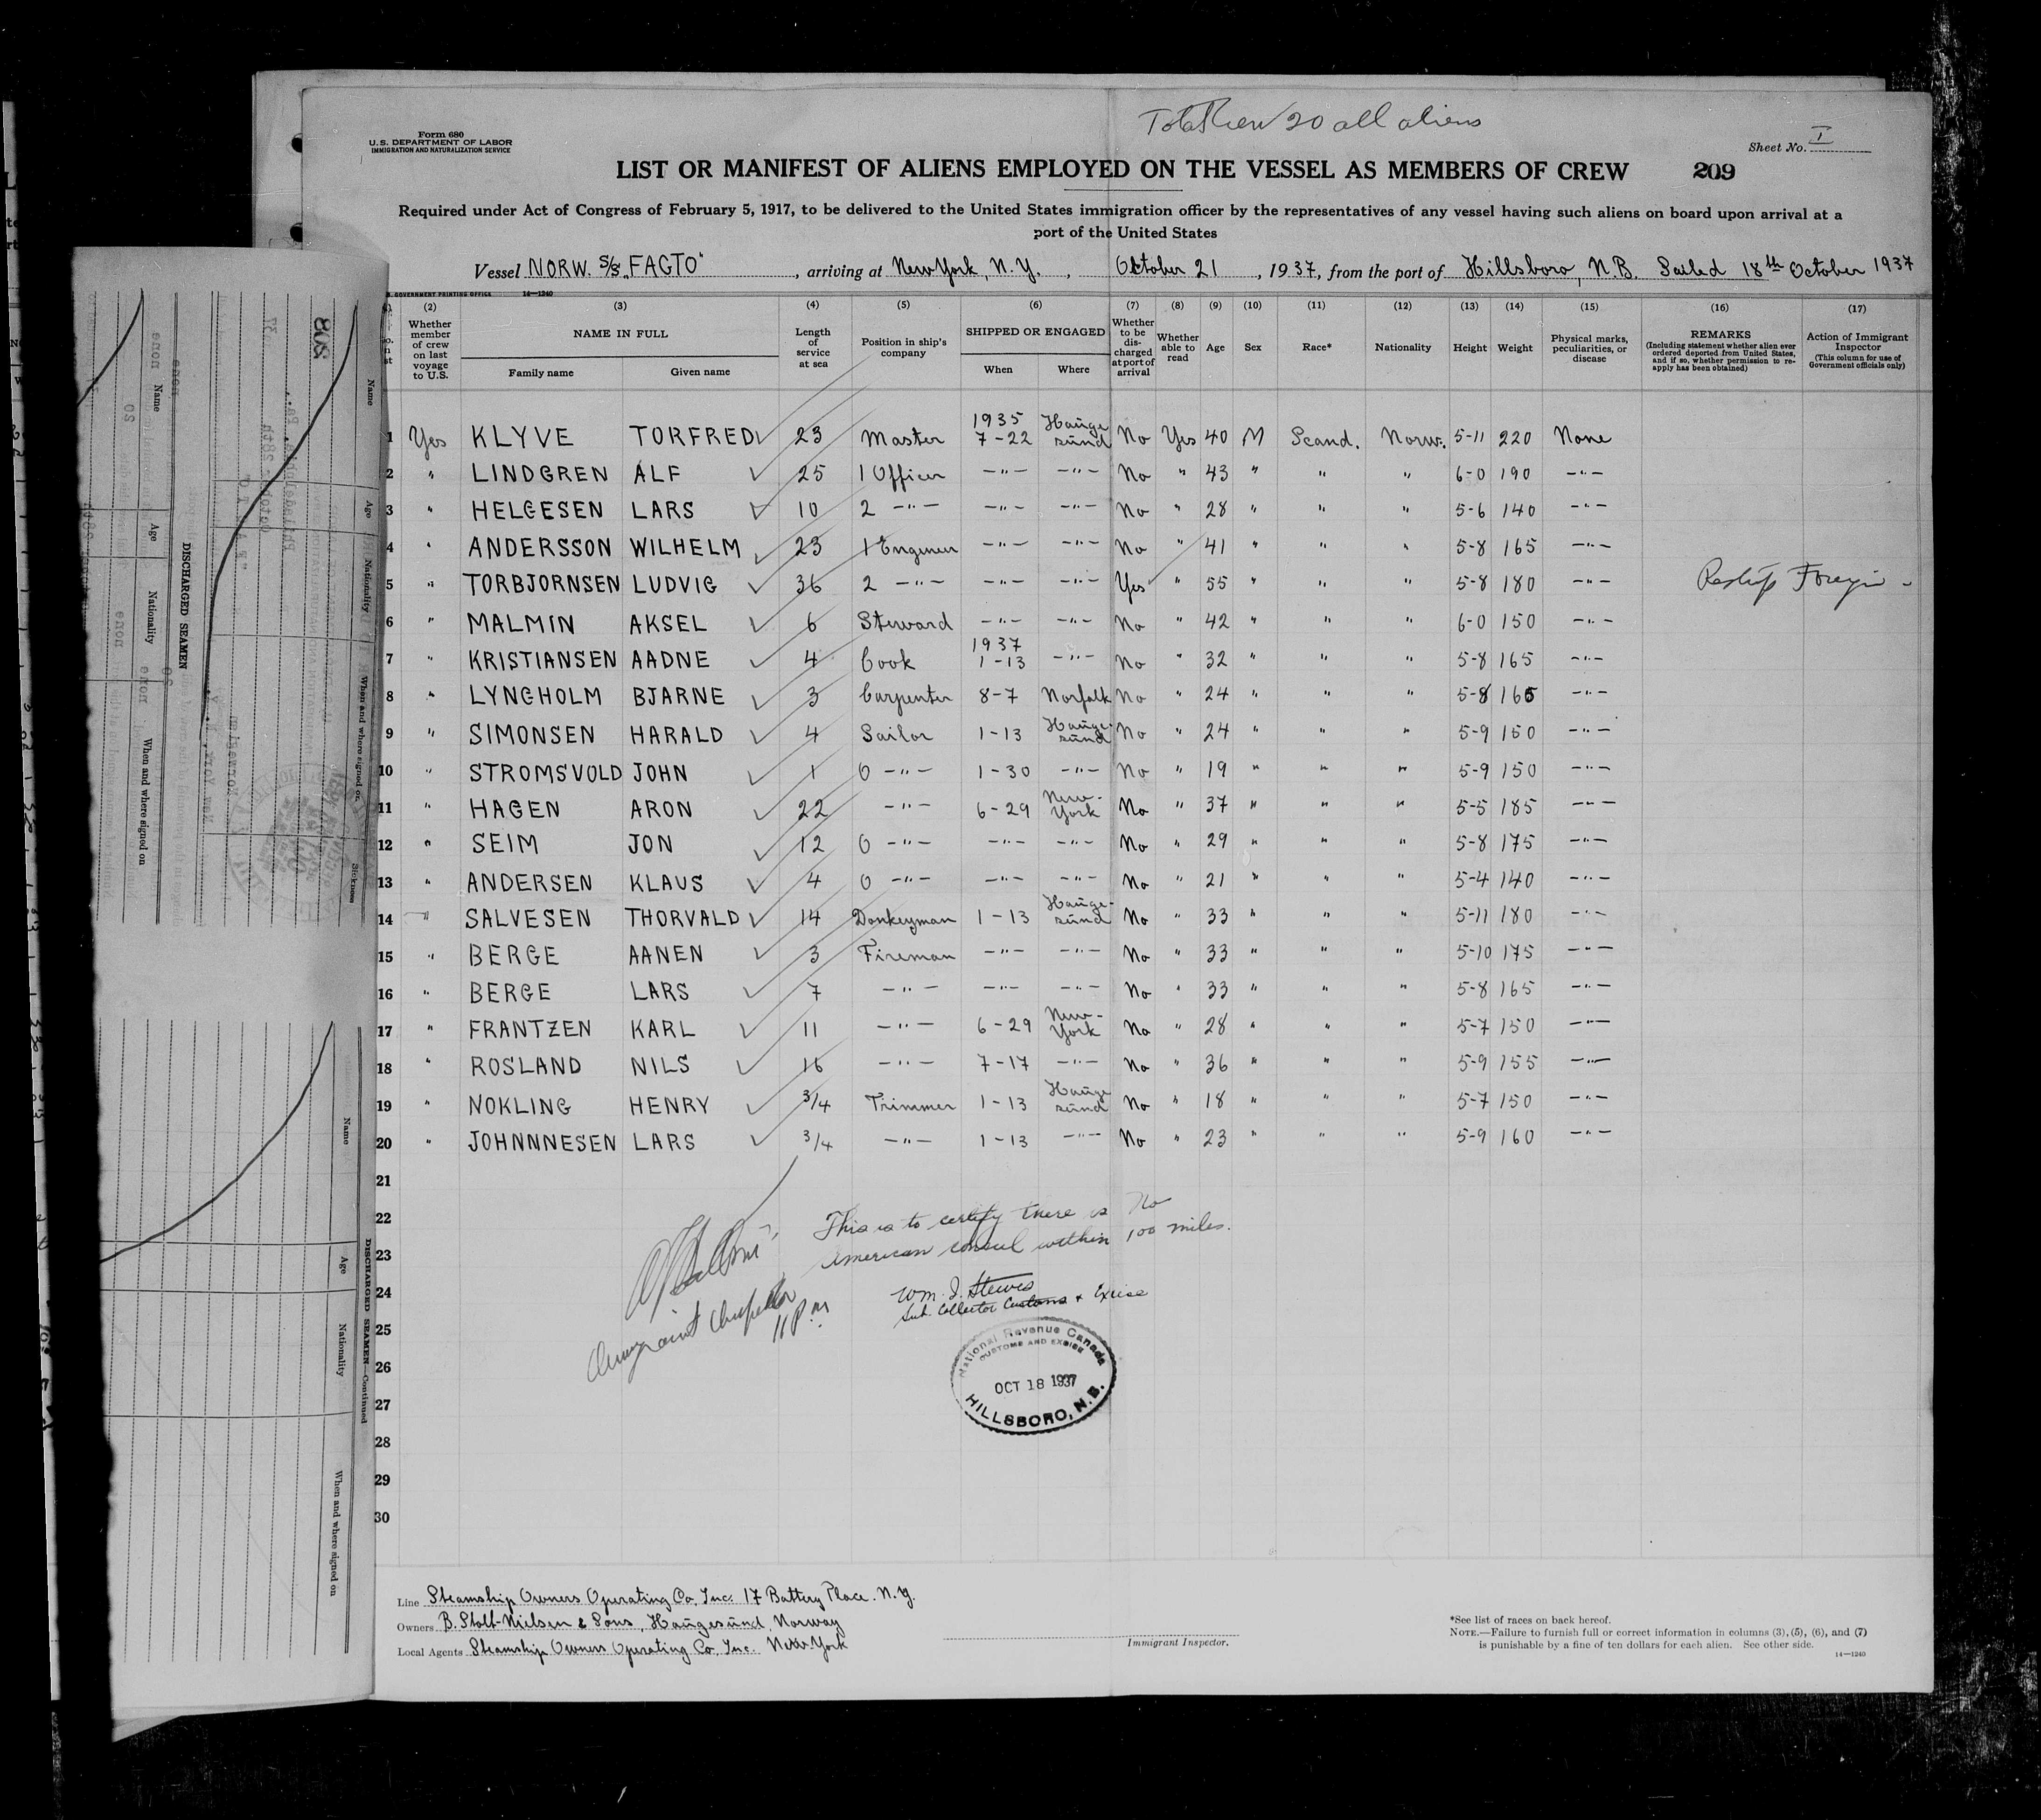 Total Crew 20 all aliens
Form 680
U.S. DEPARTMENT OF LABOR
IMMIGRATION AND NATURALIZATION SERVICE
Sheet No. I
LIST OR MANIFEST OF ALIENS EMPLOYED ON THE VESSEL AS MEMBERS OF CREW 209
Required under Act of Congress of February 5, 1917, to be delivered to the United States immigration officer by the representatives of any vessel having such aliens on board upon arrival at a
port of the United States
Vessel NORW. S/S "FAGTO", arriving at New York, N.Y., October 21, 1937, from the port of Hillsboro, N.B. Sailed 18th October 1937
GOVERNMENT PRINTING OFFICE 14—1240
(2) (3) (4) (5) (6) (7) (8) (9) (10) (11) (12) (13) (14) (15) (16) (17)
Whether member of crew on last voyage to U.S.
NAME IN FULL
Family name Given name
Length of service at sea
Position in ship's company
SHIPPED OR ENGAGED
When Where
Whether to be discharged at port of arrival
Whether able to read
Age Sex Race* Nationality Height Weight
Physical marks, peculiarities, or disease
REMARKS
(Including statement whether alien ever ordered deported from United States, and if so, whether permission to reapply has been obtained)
Action of Immigrant Inspector
(This column for use of Government officials only)
1 Yes KLYVE TORFRED 23 Master 1935 7-22 Haugesund No Yes 40 M Scand. Norw. 5-11 220 None
2 " LINDGREN ALF 25 1 Officer —"— —"— No " 43 " " " 6-0 190 —"—
3 " HELGESEN LARS 10 2 —"— —"— —"— No " 28 " " " 5-6 140 —"—
4 " ANDERSSON WILHELM 23 1 Engineer —"— —"— No " 41 " " " 5-8 165 —"—
5 " TORBJORNSEN LUDVIG 36 2 —"— —"— —"— Yes " 55 " " " 5-8 180 —"— Reship Foreign -
6 " MALMIN AKSEL 6 Steward —"— —"— No " 42 " " " 6-0 150 —"—
7 " KRISTIANSEN AADNE 4 Cook 1937 1-13 —"— No " 32 " " " 5-8 165 —"—
8 " LYNGHOLM BJARNE 3 Carpenter 8-7 Norfolk No " 24 " " " 5-8 165 —"—
9 " SIMONSEN HARALD 4 Sailor 1-13 Haugesund No " 24 " " " 5-9 150 —"—
10 " STROMSVOLD JOHN 1 O —"— 1-30 —"— No " 19 " " " 5-9 150 —"—
11 " HAGEN ARON 22 —"— 6-29 New-York No " 37 " " " 5-5 185 —"—
12 " SEIM JON 12 O —"— —"— —"— No " 29 " " " 5-8 175 —"—
13 " ANDERSEN KLAUS 4 O —"— —"— —"— No " 21 " " " 5-4 140 —"—
14 " SALVESEN THORVALD 14 Donkeyman 1-13 Haugesund No " 33 " " " 5-11 180 —"—
15 " BERGE AANEN 3 Fireman —"— —"— No " 33 " " " 5-10 175 —"—
16 " BERGE LARS 7 —"— —"— —"— No " 33 " " " 5-8 165 —"—
17 " FRANTZEN KARL 11 —"— 6-29 New-York No " 28 " " " 5-7 150 —"—
18 " ROSLAND NILS 16 —"— 7-17 —"— No " 36 " " " 5-9 155 —"—
19 " NOKLING HENRY 3/4 Trimmer 1-13 Haugesund No " 18 " " " 5-7 150 —"—
20 " JOHNNNESEN LARS 3/4 —"— 1-13 —"— No " 23 " " " 5-9 160 —"—
21
22
23
24
25
26
27
28
29
30
This is to certify there is No
American consul within 100 miles.
Wm. J. Steves
Sub. Collector Customs & Excise
11 P.M
National Revenue Canada
CUSTOMS AND EXCISE
OCT 18 1937
HILLSBORO, N.B.
Line Steamship Owners Operating Co. Inc. 17 Battery Place. N.Y.
Owners B. Stolt-Nielsen & Sons, Haugesund, Norway
Local Agents Steamship Owners Operating Co. Inc. New York
Immigrant Inspector.
*See list of races on back hereof.
NOTE.—Failure to furnish full or correct information in columns (3), (5), (6), and (7)
is punishable by a fine of ten dollars for each alien. See other side.
14—1240
DISCHARGED SEAMEN
Name Age Nationality When and where signed on
Name Age Nationality When and where signed on Sickness
DISCHARGED SEAMEN—Continued
Name Age Nationality When and where signed on